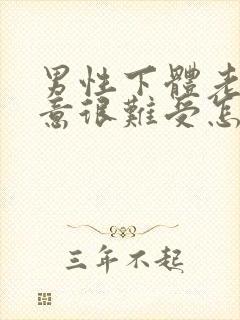 男性下體老
意很難受怎
三年不起